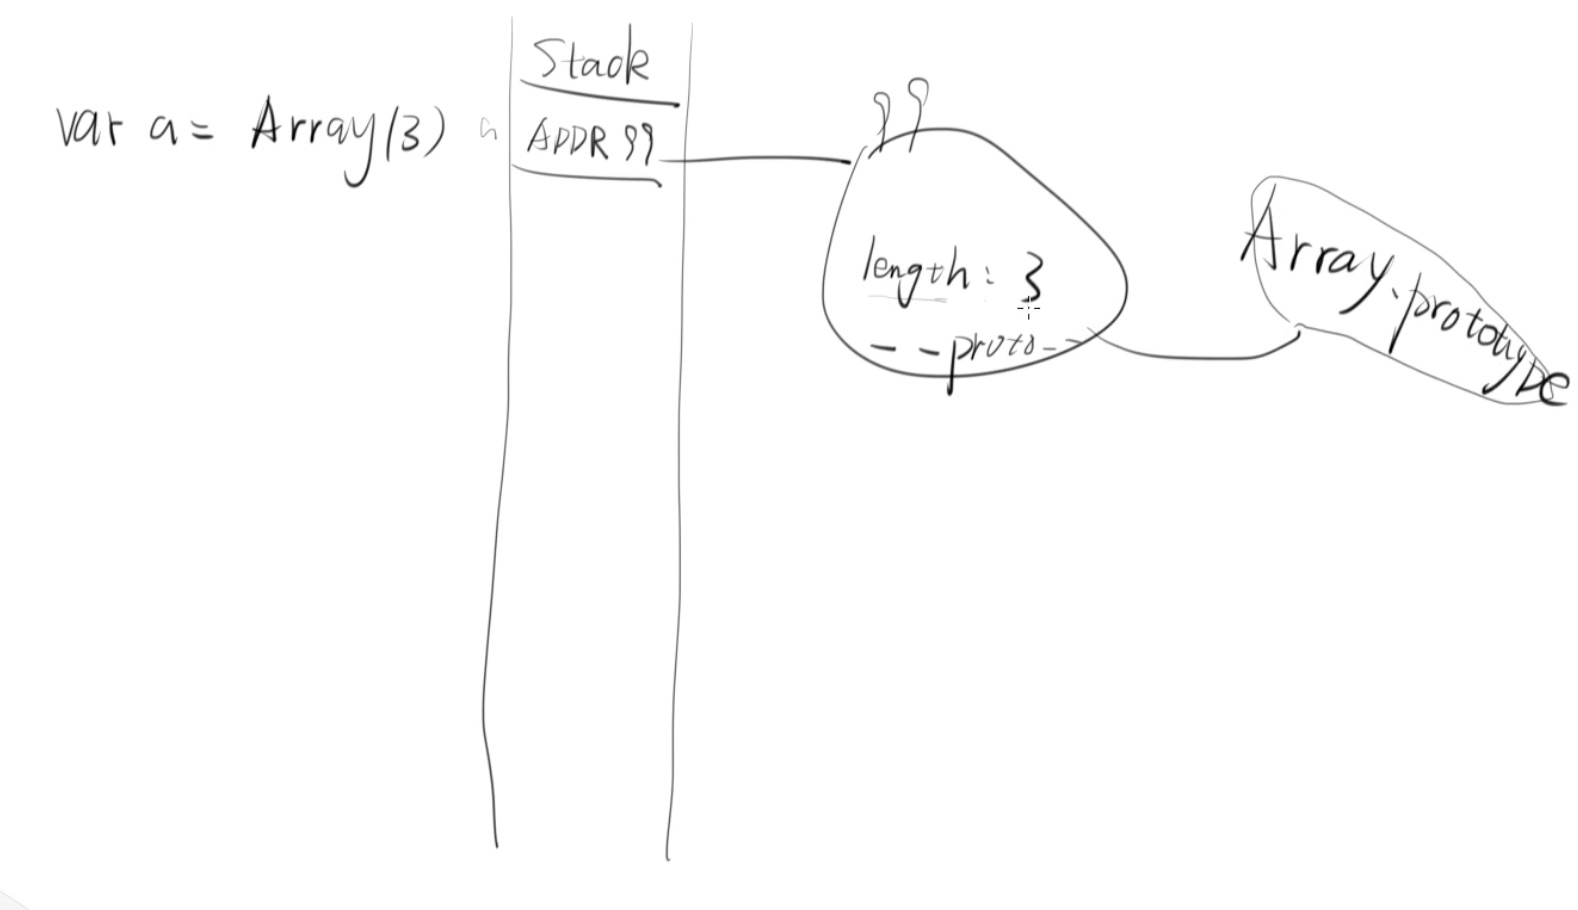 Stack
var a = Array(3) a
ADDR 99
99
length: 3
--proto--
Array.prototype